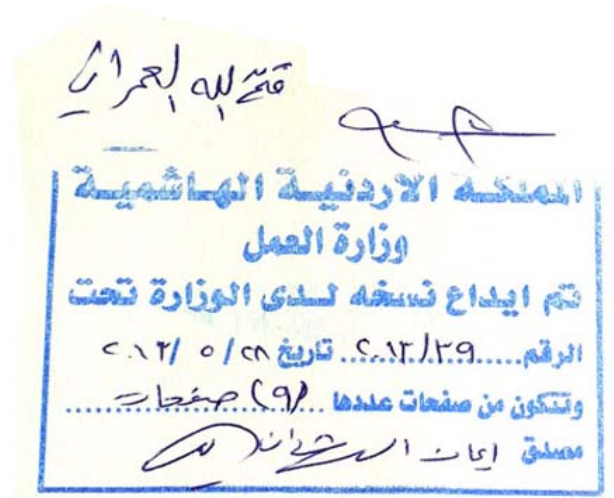 فتح الله العمراني
المملكه الاردنية الهاشمية
وزارة العمل
تم ايداع نسخه لدى الوزارة تحت
الرقم.....٢٠١٣/٣٩..... تاريخ ٢٨/ ٥ /٢٠١٣
وتتكون من صفحات عددها ...(٩) صفحات......
مصدق ايمان